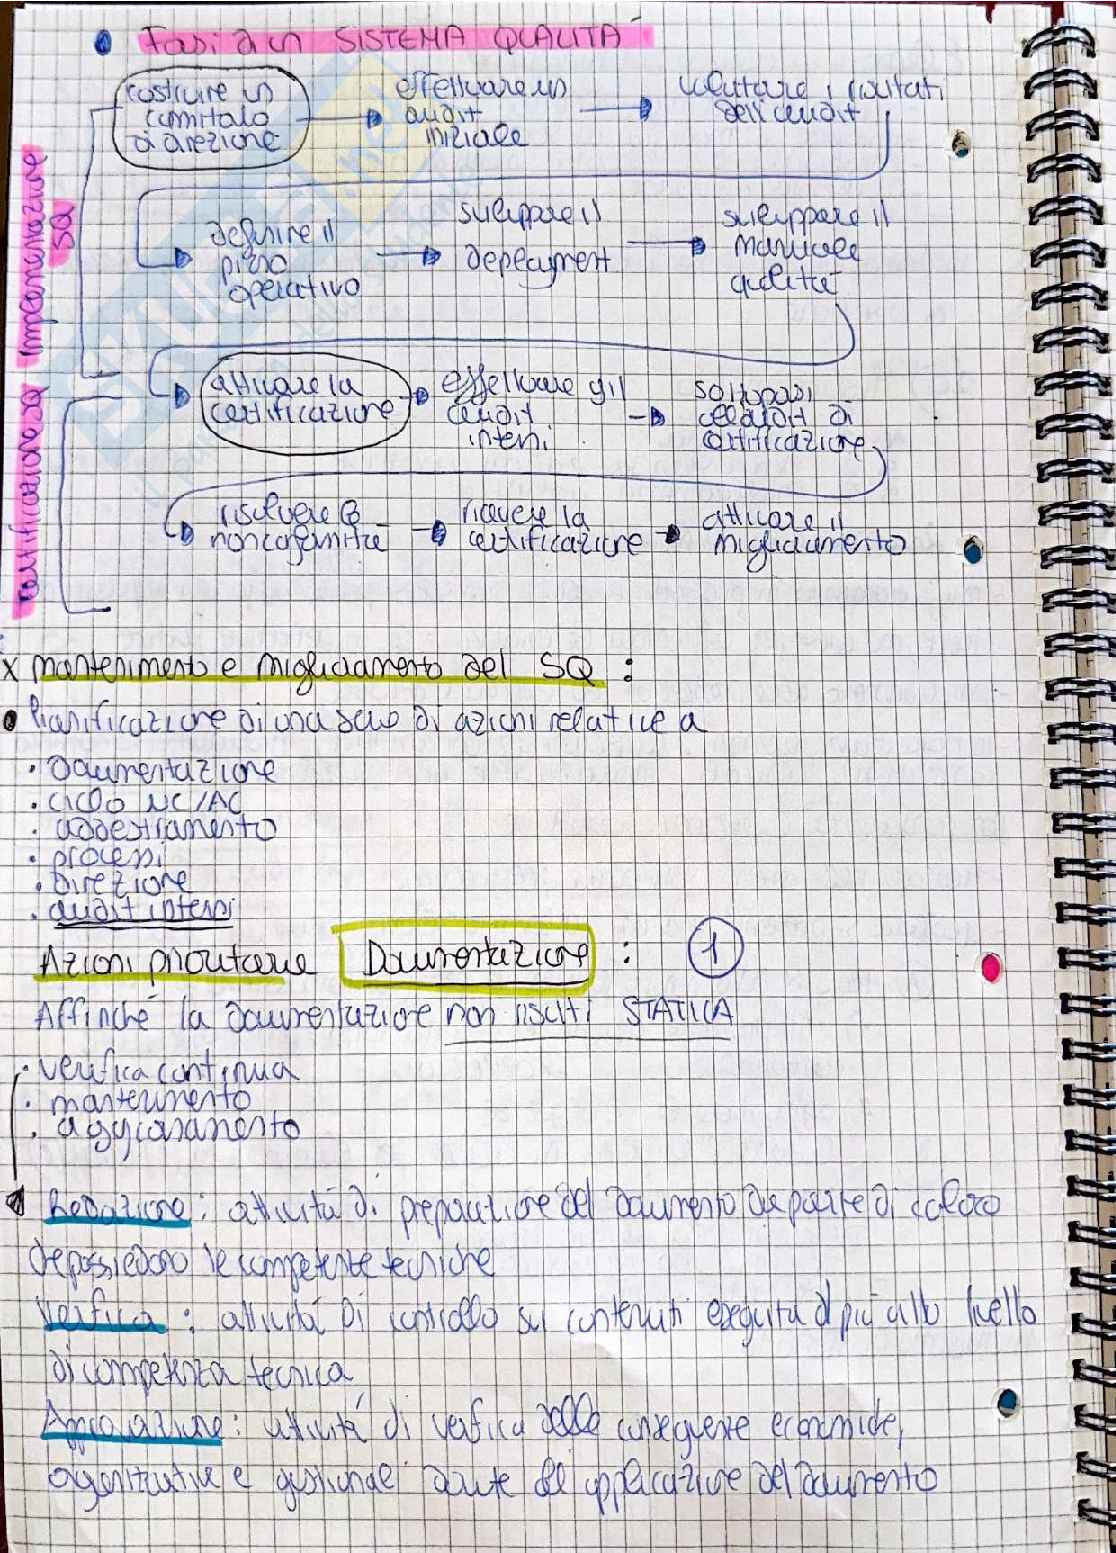 Fasi di un SISTEMA QUALITÀ
costruire un comitato di direzione
effettuare un audit iniziale
valutare i risultati dell'audit
definire il piano operativo
sviluppare il deployment
sviluppare il manuale qualità
attivare la certificazione
effettuare gli audit interni
sottoporsi all'audit di certificazione
risolvere le non conformità
ricevere la certificazione
attivare il miglioramento
Implementazione SQ
Certificazione SQ
x mantenimento e miglioramento del SQ :
• Pianificazione di una serie di azioni relative a
· Documentazione
· ciclo NC/AC
· addestramento
· processi
· Direzione
· audit interni
Azioni prioritarie Documentazione : 1
Affinché la documentazione non risulti STATICA
· verifica continua
· mantenimento
· aggiornamento
Redazione : attività di preparazione del documento da parte di coloro
che possiedono le competenze tecniche
Verifica : attività di controllo sui contenuti eseguita al più alto livello
di competenza tecnica
Approvazione : attività di verifica delle conseguenze economiche,
organizzative e gestionali dovute all'applicazione del documento